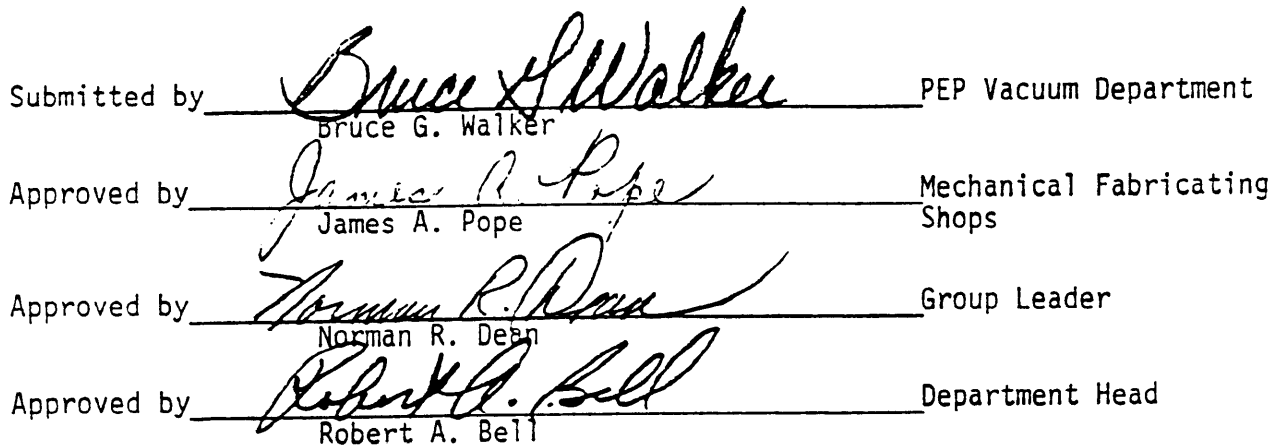 Submitted by Bruce G Walker PEP Vacuum Department
Bruce G. Walker
Approved by James A. Pope Mechanical Fabricating
James A. Pope Shops
Approved by Norman R. Dean Group Leader
Norman R. Dean
Approved by Robert A. Bell Department Head
Robert A. Bell